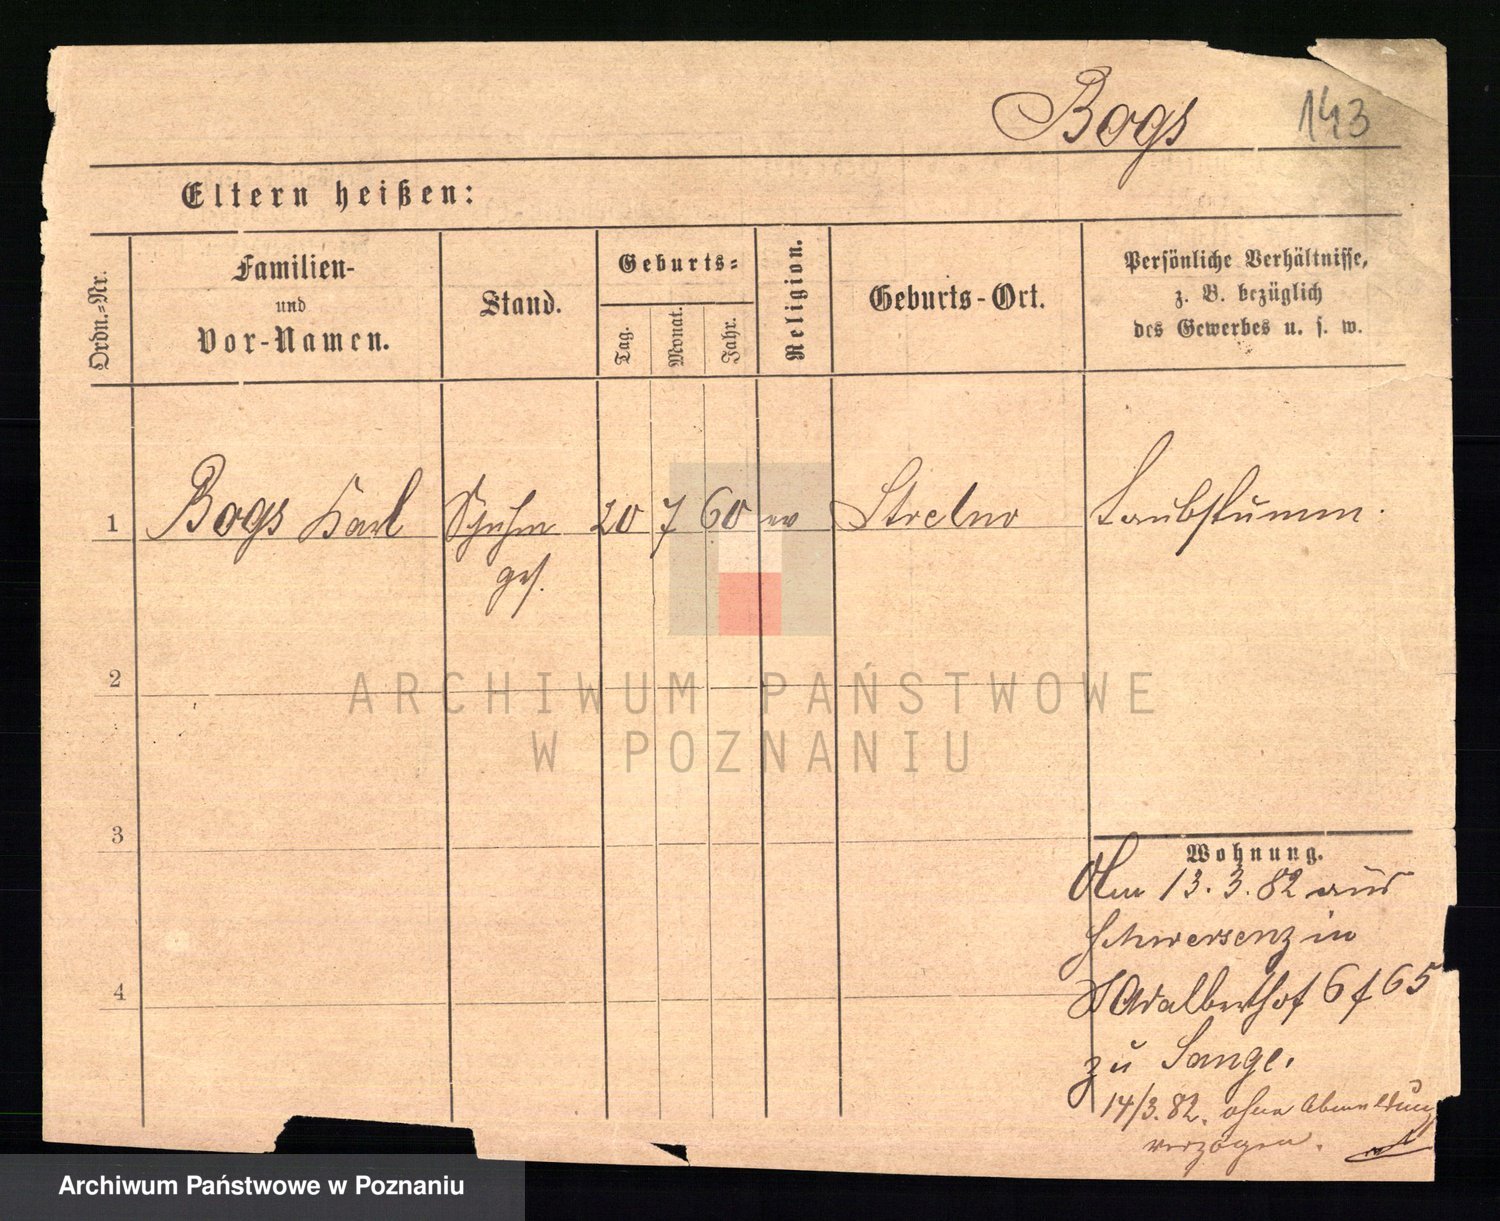 Bogs 143
Eltern heißen:
Ordn.-Nr.
Familien-
und
Vor-Namen.
Stand.
Geburts-
Tag.
Monat.
Jahr.
Religion.
Geburts-Ort.
Persönliche Verhältnisse,
z. B. bezüglich
des Gewerbes u. s. w.
1 Bogs Karl Schuhm 20 7 60 ev Strelno Taubstumm.
ges.
2
3
4
Wohnung.
Am 13.3.82 aus
Schwersenz in
St Adalberthof 6 f 65
zu Lange.
14/3.82. ohne Abmeldung
verzogen.
ARCHIWUM PAŃSTWOWE
W POZNANIU
Archiwum Państwowe w Poznaniu